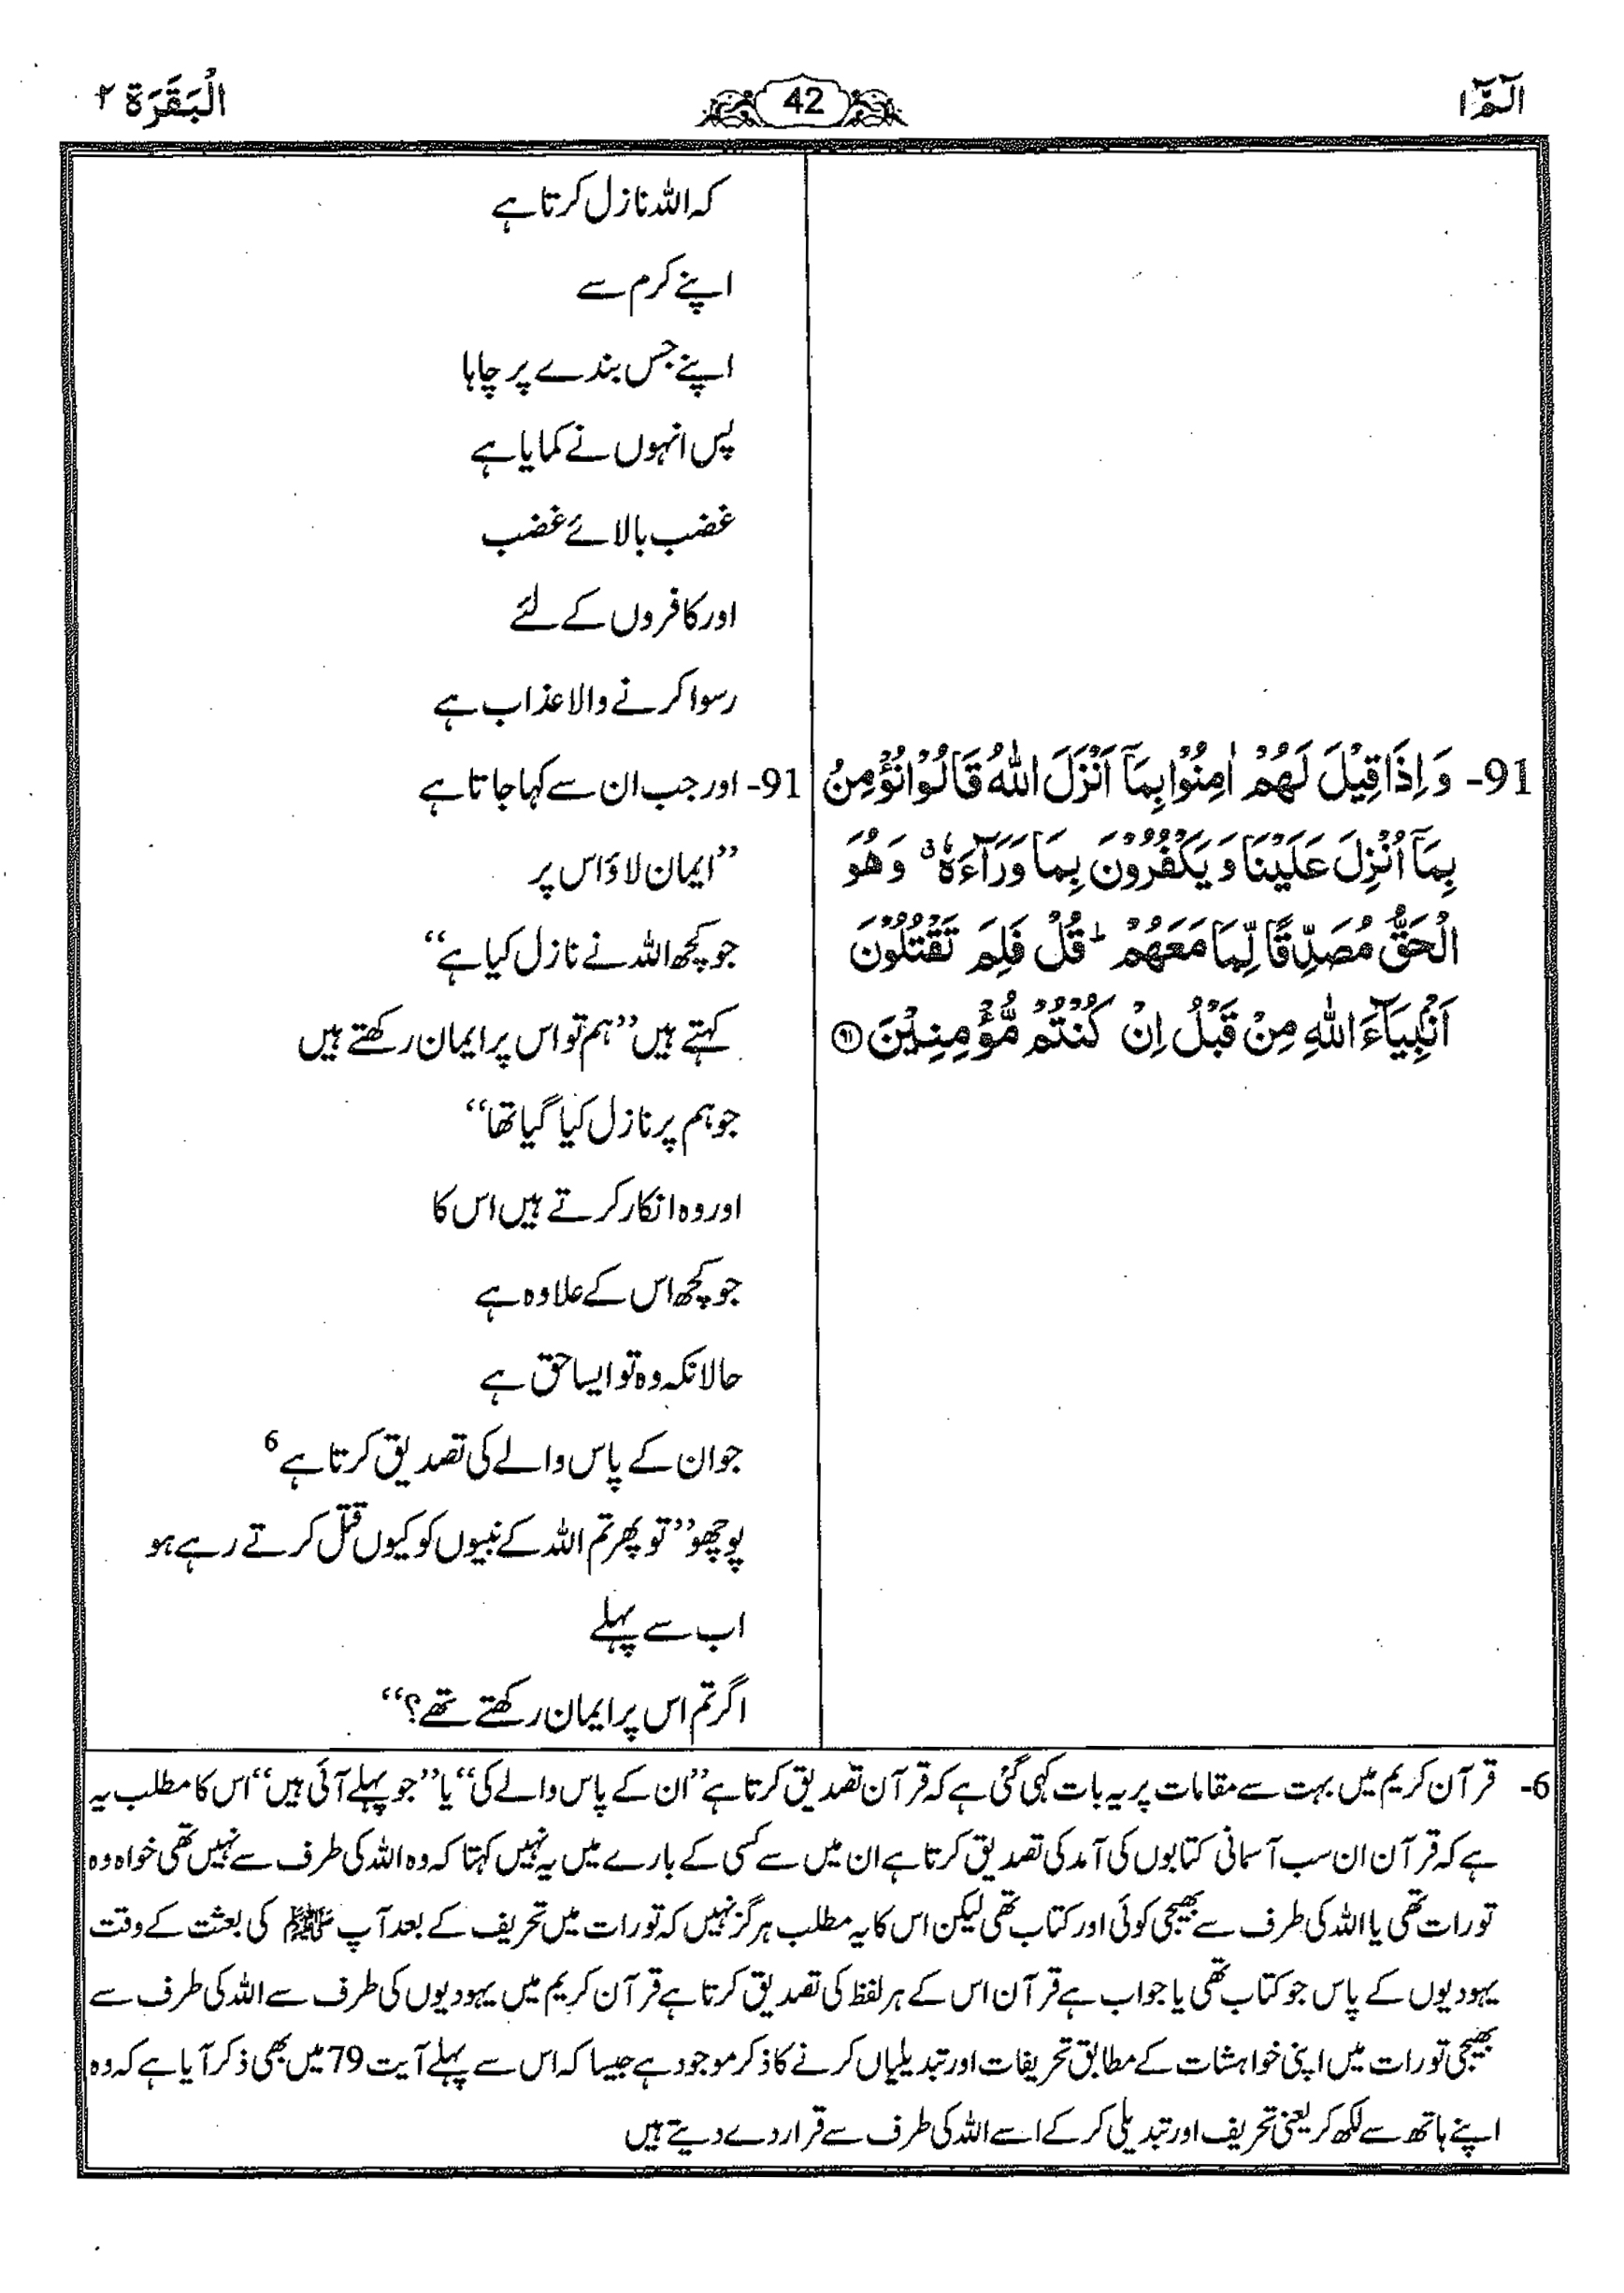 الٓمّٓ ۱
42
الْبَقَرَة ۲
کہ اللہ نازل کرتا ہے
اپنے کرم سے
اپنے جس بندے پر چاہا
پس انہوں نے کمایا ہے
غضب بالائے غضب
اور کافروں کے لئے
رسوا کرنے والا عذاب ہے
91- وَ اِذَا قِیْلَ لَهُمْ اٰمِنُوْا بِمَاۤ اَنْزَلَ اللّٰهُ قَالُوْا نُؤْمِنُ
بِمَاۤ اُنْزِلَ عَلَیْنَا وَ یَكْفُرُوْنَ بِمَا وَرَآءَهٗ ۗ وَ هُوَ
الْحَقُّ مُصَدِّقًا لِّمَا مَعَهُمْ ؕ قُلْ فَلِمَ تَقْتُلُوْنَ
اَنْۢبِیَآءَ اللّٰهِ مِنْ قَبْلُ اِنْ كُنْتُمْ مُّؤْمِنِیْنَ ﴿۹۱﴾
91- اور جب ان سے کہا جاتا ہے
’’ایمان لاؤ اس پر
جو کچھ اللہ نے نازل کیا ہے‘‘
کہتے ہیں ’’ہم تو اس پر ایمان رکھتے ہیں
جو ہم پر نازل کیا گیا تھا‘‘
اور وہ انکار کرتے ہیں اس کا
جو کچھ اس کے علاوہ ہے
حالانکہ وہ تو ایسا حق ہے
جو ان کے پاس والے کی تصدیق کرتا ہے 6
پوچھو ’’تو پھر تم اللہ کے نبیوں کو کیوں قتل کرتے رہے ہو
اب سے پہلے
اگر تم اس پر ایمان رکھتے تھے؟‘‘
6- قرآن کریم میں بہت سے مقامات پر یہ بات کہی گئی ہے کہ قرآن تصدیق کرتا ہے ’’ان کے پاس والے کی‘‘ یا ’’جو پہلے آئی ہیں‘‘ اس کا مطلب یہ
ہے کہ قرآن ان سب آسمانی کتابوں کی آمد کی تصدیق کرتا ہے ان میں سے کسی کے بارے میں یہ نہیں کہتا کہ وہ اللہ کی طرف سے نہیں تھی خواہ وہ
تورات تھی یا اللہ کی طرف سے بھیجی کوئی اور کتاب تھی لیکن اس کا یہ مطلب ہرگز نہیں کہ تورات میں تحریف کے بعد آپ ﷺ کی بعثت کے وقت
یہودیوں کے پاس جو کتاب تھی یا جو اب ہے قرآن اس کے ہر لفظ کی تصدیق کرتا ہے قرآن کریم میں یہودیوں کی طرف سے اللہ کی طرف سے
بھیجی تورات میں اپنی خواہشات کے مطابق تحریفات اور تبدیلیاں کرنے کا ذکر موجود ہے جیسا کہ اس سے پہلے آیت 79 میں بھی ذکر آیا ہے کہ وہ
اپنے ہاتھ سے لکھ کر یعنی تحریف اور تبدیلی کر کے اسے اللہ کی طرف سے قرار دے دیتے ہیں